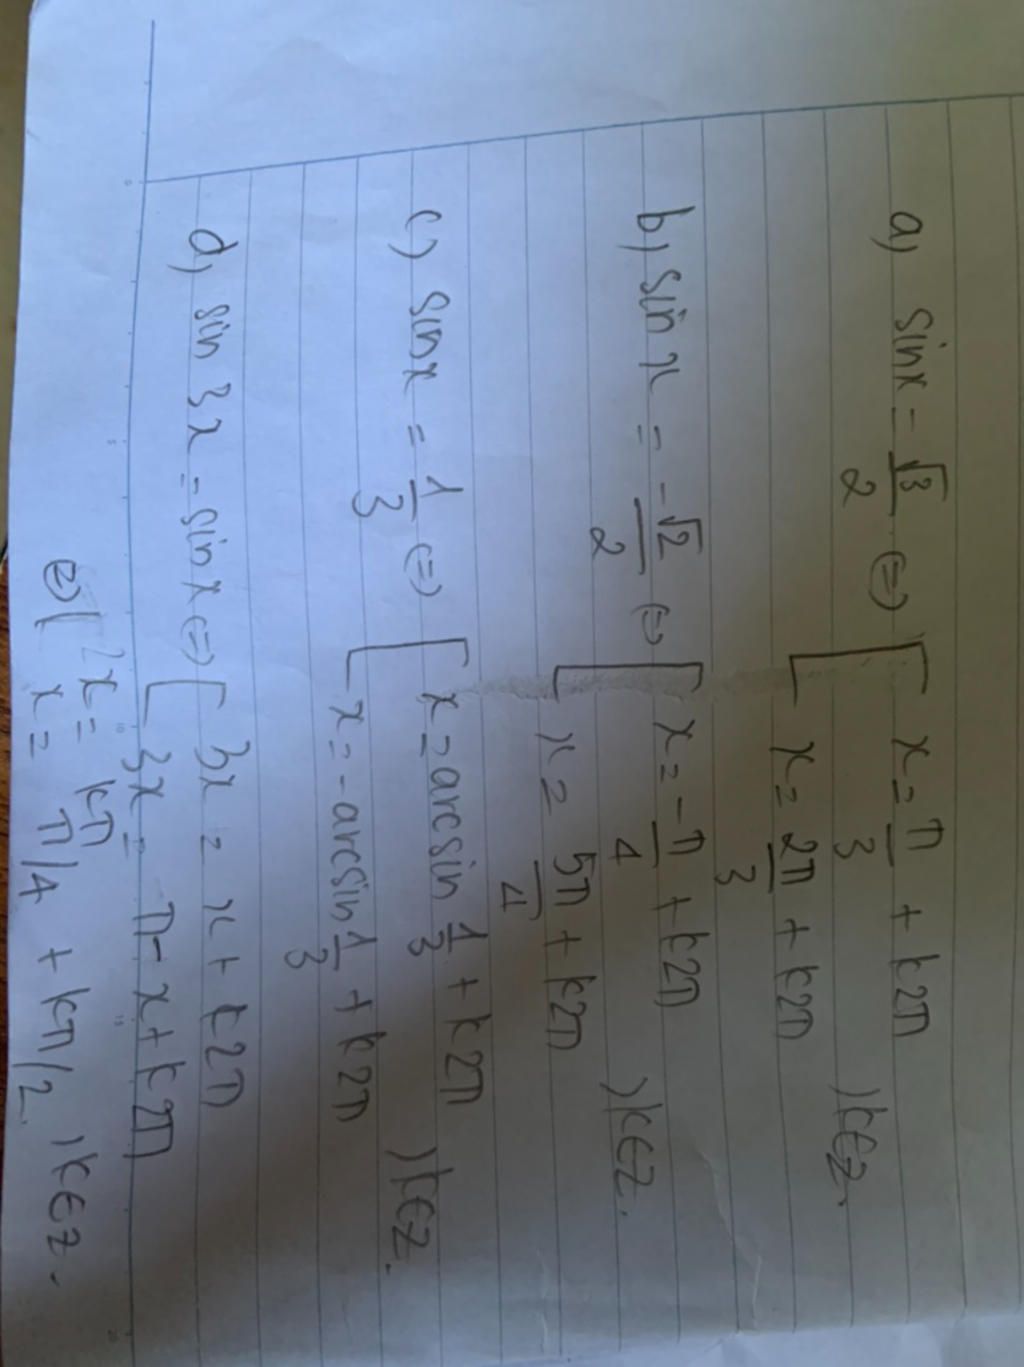 a) sinx = √3/2 (=) [ x = π/3 + k2π
x = 2π/3 + k2π , k∈Z.
b) sin x = -√2/2 (=) [ x = -π/4 + k2π
x = 5π/4 + k2π , k∈Z.
c) sinx = 1/3 (=) [ x = arcsin 1/3 + k2π
x = -arcsin 1/3 + k2π , k∈Z.
d) sin 3x = sin x (=) [ 3x = x + k2π
3x = π - x + k2π
(=) [ 2x = kπ
x = π/4 + kπ/2 , k∈Z.